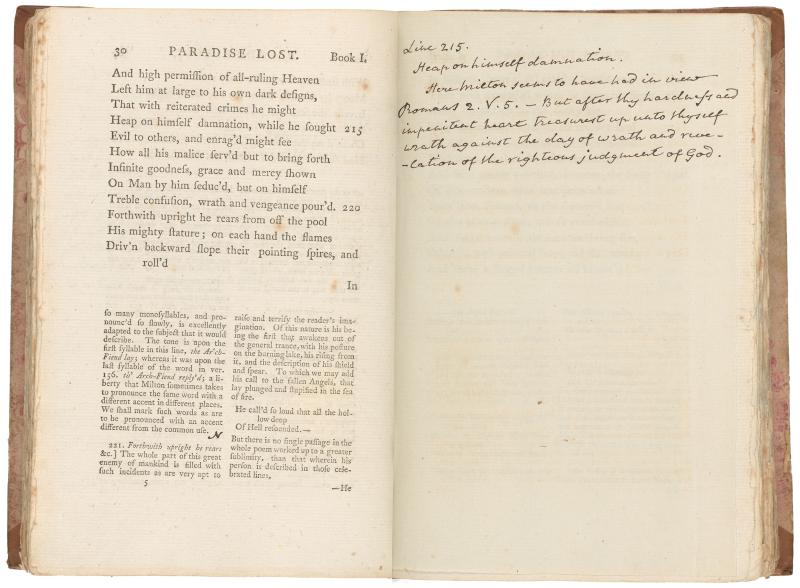 30 PARADISE LOST. Book I.
And high permiſſion of all-ruling Heaven
Left him at large to his own dark deſigns,
That with reiterated crimes he might
Heap on himſelf damnation, while he ſought 215
Evil to others, and enrag'd might ſee
How all his malice ſerv'd but to bring forth
Infinite goodneſs, grace and mercy ſhown
On Man by him ſeduc'd, but on himſelf
Treble confuſion, wrath and vengeance pour'd. 220
Forthwith upright he rears from off the pool
His mighty ſtature; on each hand the flames
Driv'n backward ſlope their pointing ſpires, and
roll'd
In
ſo many monoſyllables, and pro-
nounc'd ſo ſlowly, is excellently
adapted to the ſubject that it would
deſcribe. The tone is upon the
firſt ſyllable in this line, the Ar'ch-
Fiend lay; whereas it was upon the
laſt ſyllable of the word in ver.
156. th' Arch-Fiend reply'd; a li-
berty that Milton ſometimes takes
to pronounce the ſame word with a
different accent in different places.
We ſhall mark ſuch words as are
to be pronounced with an accent
different from the common uſe.
N
221. Forthwith upright he rears
&c.] The whole part of this great
enemy of mankind is filled with
ſuch incidents as are very apt to
5
raiſe and terrify the reader's ima-
gination. Of this nature is his be-
ing the firſt that awakens out of
the general trance, with his poſture
on the burning lake, his riſing from
it, and the deſcription of his ſhield
and ſpear. To which we may add
his call to the fallen Angels, that
lay plunged and ſtupified in the ſea
of fire.
He call'd ſo loud that all the hol-
low deep
Of Hell reſounded.—
But there is no ſingle paſſage in the
whole poem worked up to a greater
ſublimity, than that wherein his
perſon is deſcribed in thoſe cele-
brated lines,
—He
Line 215.
Heap on himself damnation.
Here Milton seems to have had in view
Romans 2. V. 5. — But after thy hardneſs and
impenitent heart treasurest up unto thyself
wrath against the day of wrath and reve-
-lation of the righteous judgment of God.